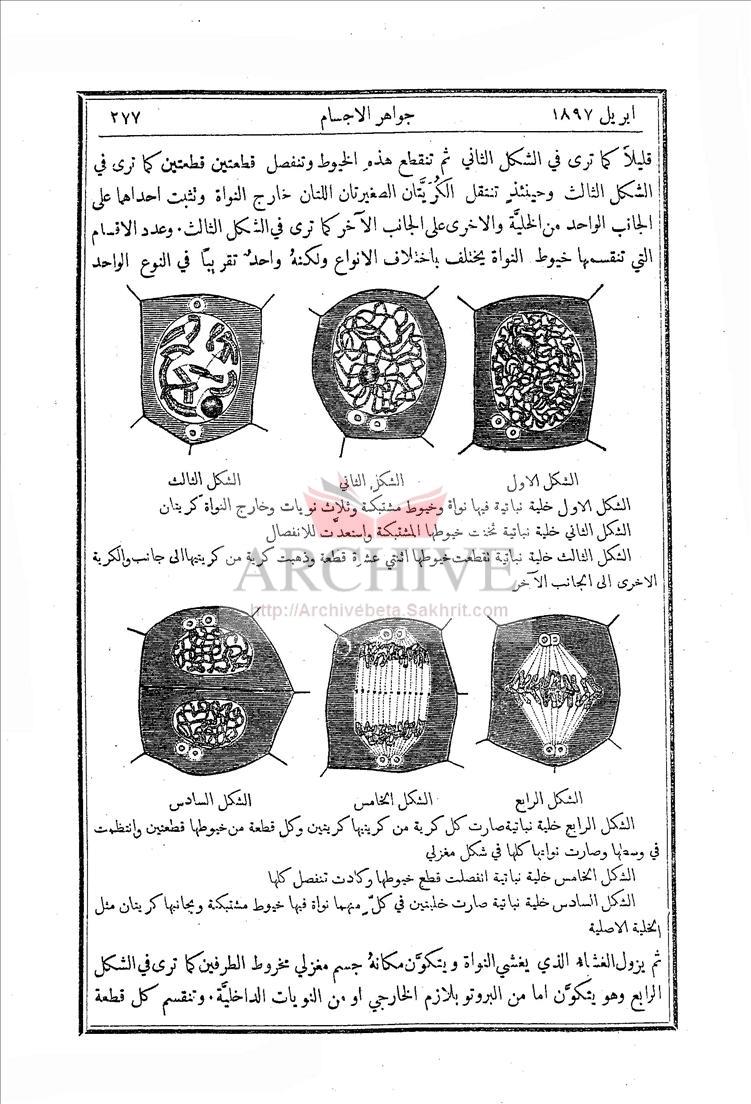 ابريل ١٨٩٧ جواهر الاجسام ٢٧٧
قليلاً كما ترى في الشكل الثاني ثم تنقطع هذهِ الخيوط وتنفصل قطعتين قطعتين كما ترى في
الشكل الثالث وحينئذٍ تنتقل الكُرَيَّتان الصغيرتان اللتان خارج النواة وتثبت احداهما على
الجانب الواحد من الخليَّة والاخرى على الجانب الآخر كما ترى في الشكل الثالث. وعدد الاقسام
التي تنقسمها خيوط النواة يختلف باختلاف الانواع ولكنهُ واحدٌ تقريباً في النوع الواحد
الشكل الاول الشكل الثاني الشكل الثالث
الشكل الاول خلية نباتية فيها نواة وخيوط مشتبكة وثلاث نويات وخارج النواة كريتان
الشكل الثاني خلية نباتية ثخنت خيوطها المشتبكة واستعدَّت للانفصال
الشكل الثالث خلية نباتية تقطعت خيوطها اثنتي عشرة قطعة وذهبت كرية من كريتيها الى جانب والكرية
الاخرى الى الجانب الآخر
ARCHIVE
http://Archivebeta.Sakhrit.com
الشكل الرابع الشكل الخامس الشكل السادس
الشكل الرابع خلية نباتية صارت كل كرية من كريتيها كريتين وكل قطعة من خيوطها قطعتين وانتظمت
في وسطها وصارت نواتها كلها في شكل مغزلي
الشكل الخامس خلية نباتية انفصلت قطع خيوطها وكادت تنفصل كلها
الشكل السادس خلية نباتية صارت خليتين في كلٍّ منهما نواة فيها خيوط مشتبكة وبجانبها كريتان مثل
الخلية الاصلية
ثم يزول الغشاء الذي يغشي النواة ويتكوَّن مكانهُ جسم مغزلي مخروط الطرفين كما ترى في الشكل
الرابع وهو يتكوَّن اما من البروتوبلازم الخارجي او من النويات الداخليَّة. وتنقسم كل قطعة